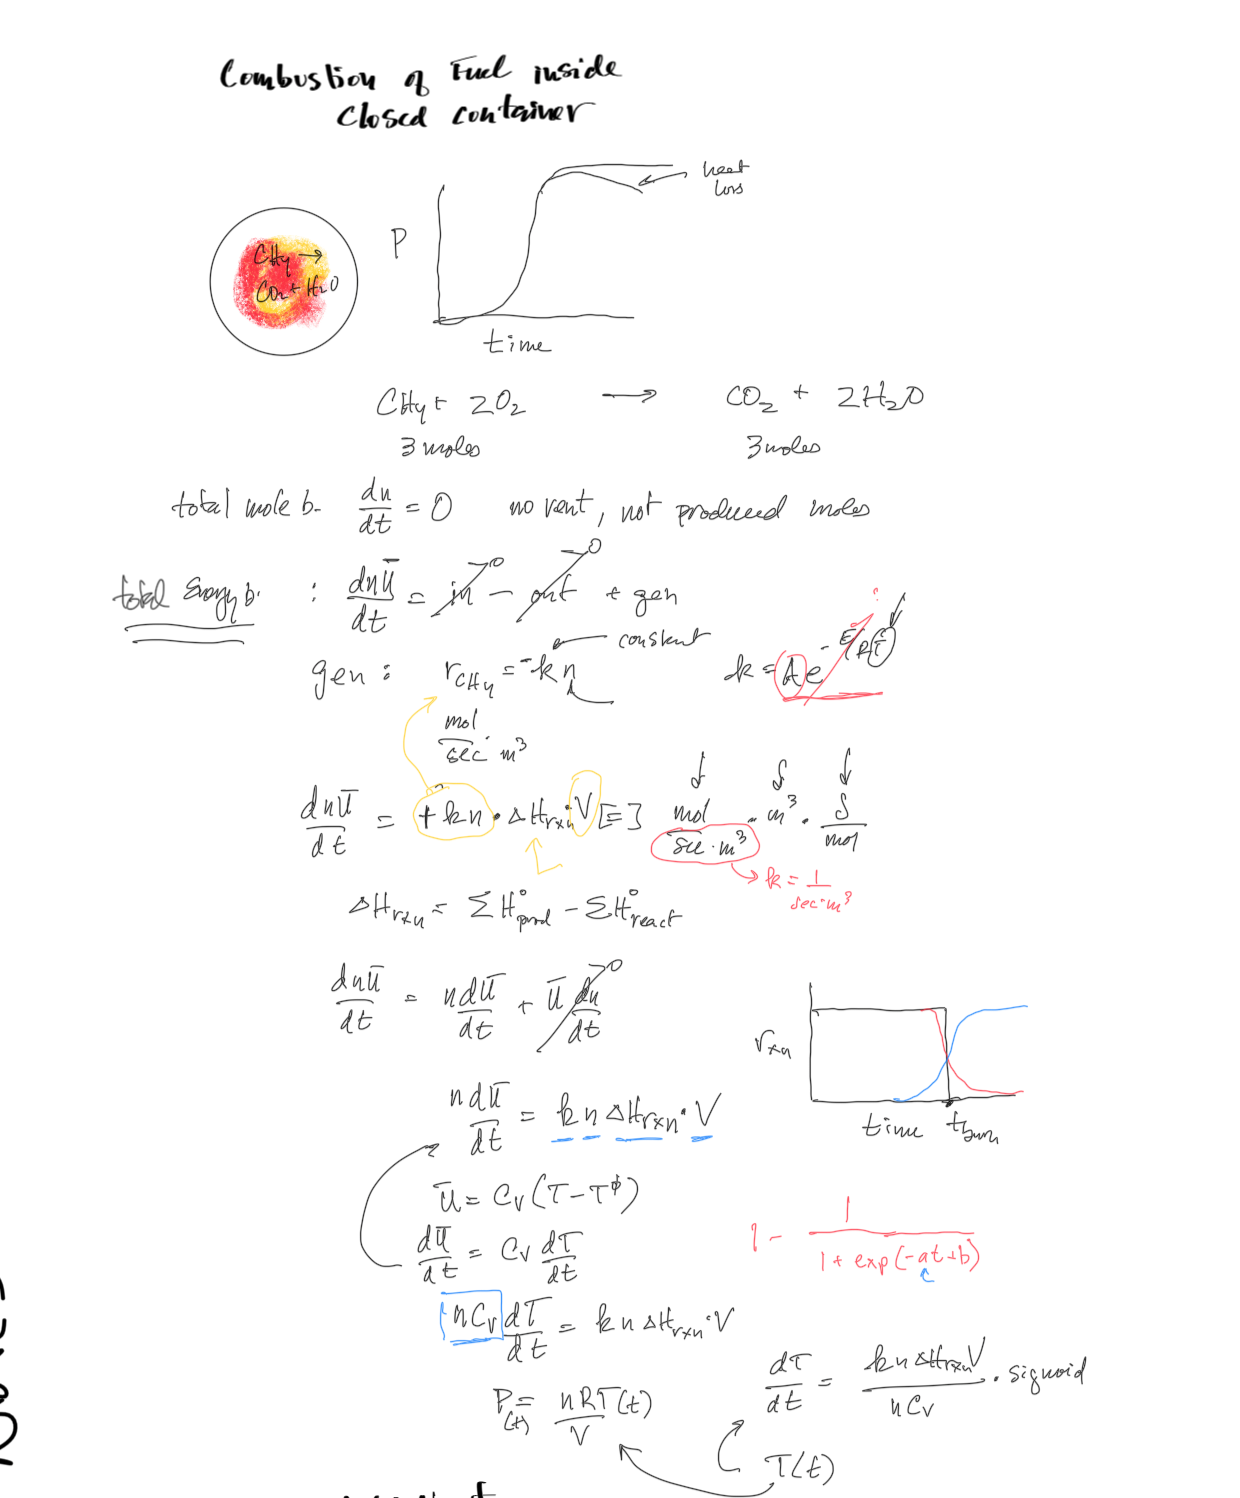 Combustion of Fuel inside
Closed container
heat
loss
P
CH4 →
CO2 + H2O
time
CH4 + 2O2 → CO2 + 2H2O
3 moles 3 moles
total mole b. dn/dt = 0 no vent, not produced moles
total Energy b. : dnU̅/dt = in→0 - out→0 + gen
constant
gen : rCH4 = -kn k = Ae^-E/RT
mol/sec · m³
dnU̅/dt = +kn · ΔHrxn · V [=] mol/sec · m³ · m³ · J/mol
k = 1/sec·m³
ΔHrxn = ΣH°prod - ΣH°react
dnU̅/dt = ndU̅/dt + U̅ dn/dt→0
rxn
time tburn
ndU̅/dt = kn ΔHrxn · V
U̅ = Cv(T-T°)
1 - 1/1 + exp(-at+b)
dU̅/dt = Cv dT/dt
nCv dT/dt = kn ΔHrxn · V
dT/dt = kn ΔHrxn V/nCv · sigmoid
P(t) = nRT(t)/V
T(t)